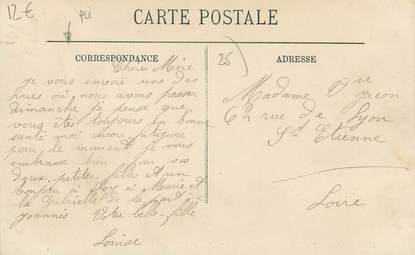 12 €
PU
CARTE POSTALE
CORRESPONDANCE
ADRESSE
25
Chere Mère
je vous envoie une des
vues où nous avons passer
dimanche je pense que
vous êtes toujours en bonne
santé moi encore
pour le moment je vous
embrasse bien vos
deux petites filles et un
bonjour à Marie et
la Gabrielle de la part à
Joannès Votre belle-fille
Louise
Madame Vve
62 rue de Lyon
St Etienne
Loire